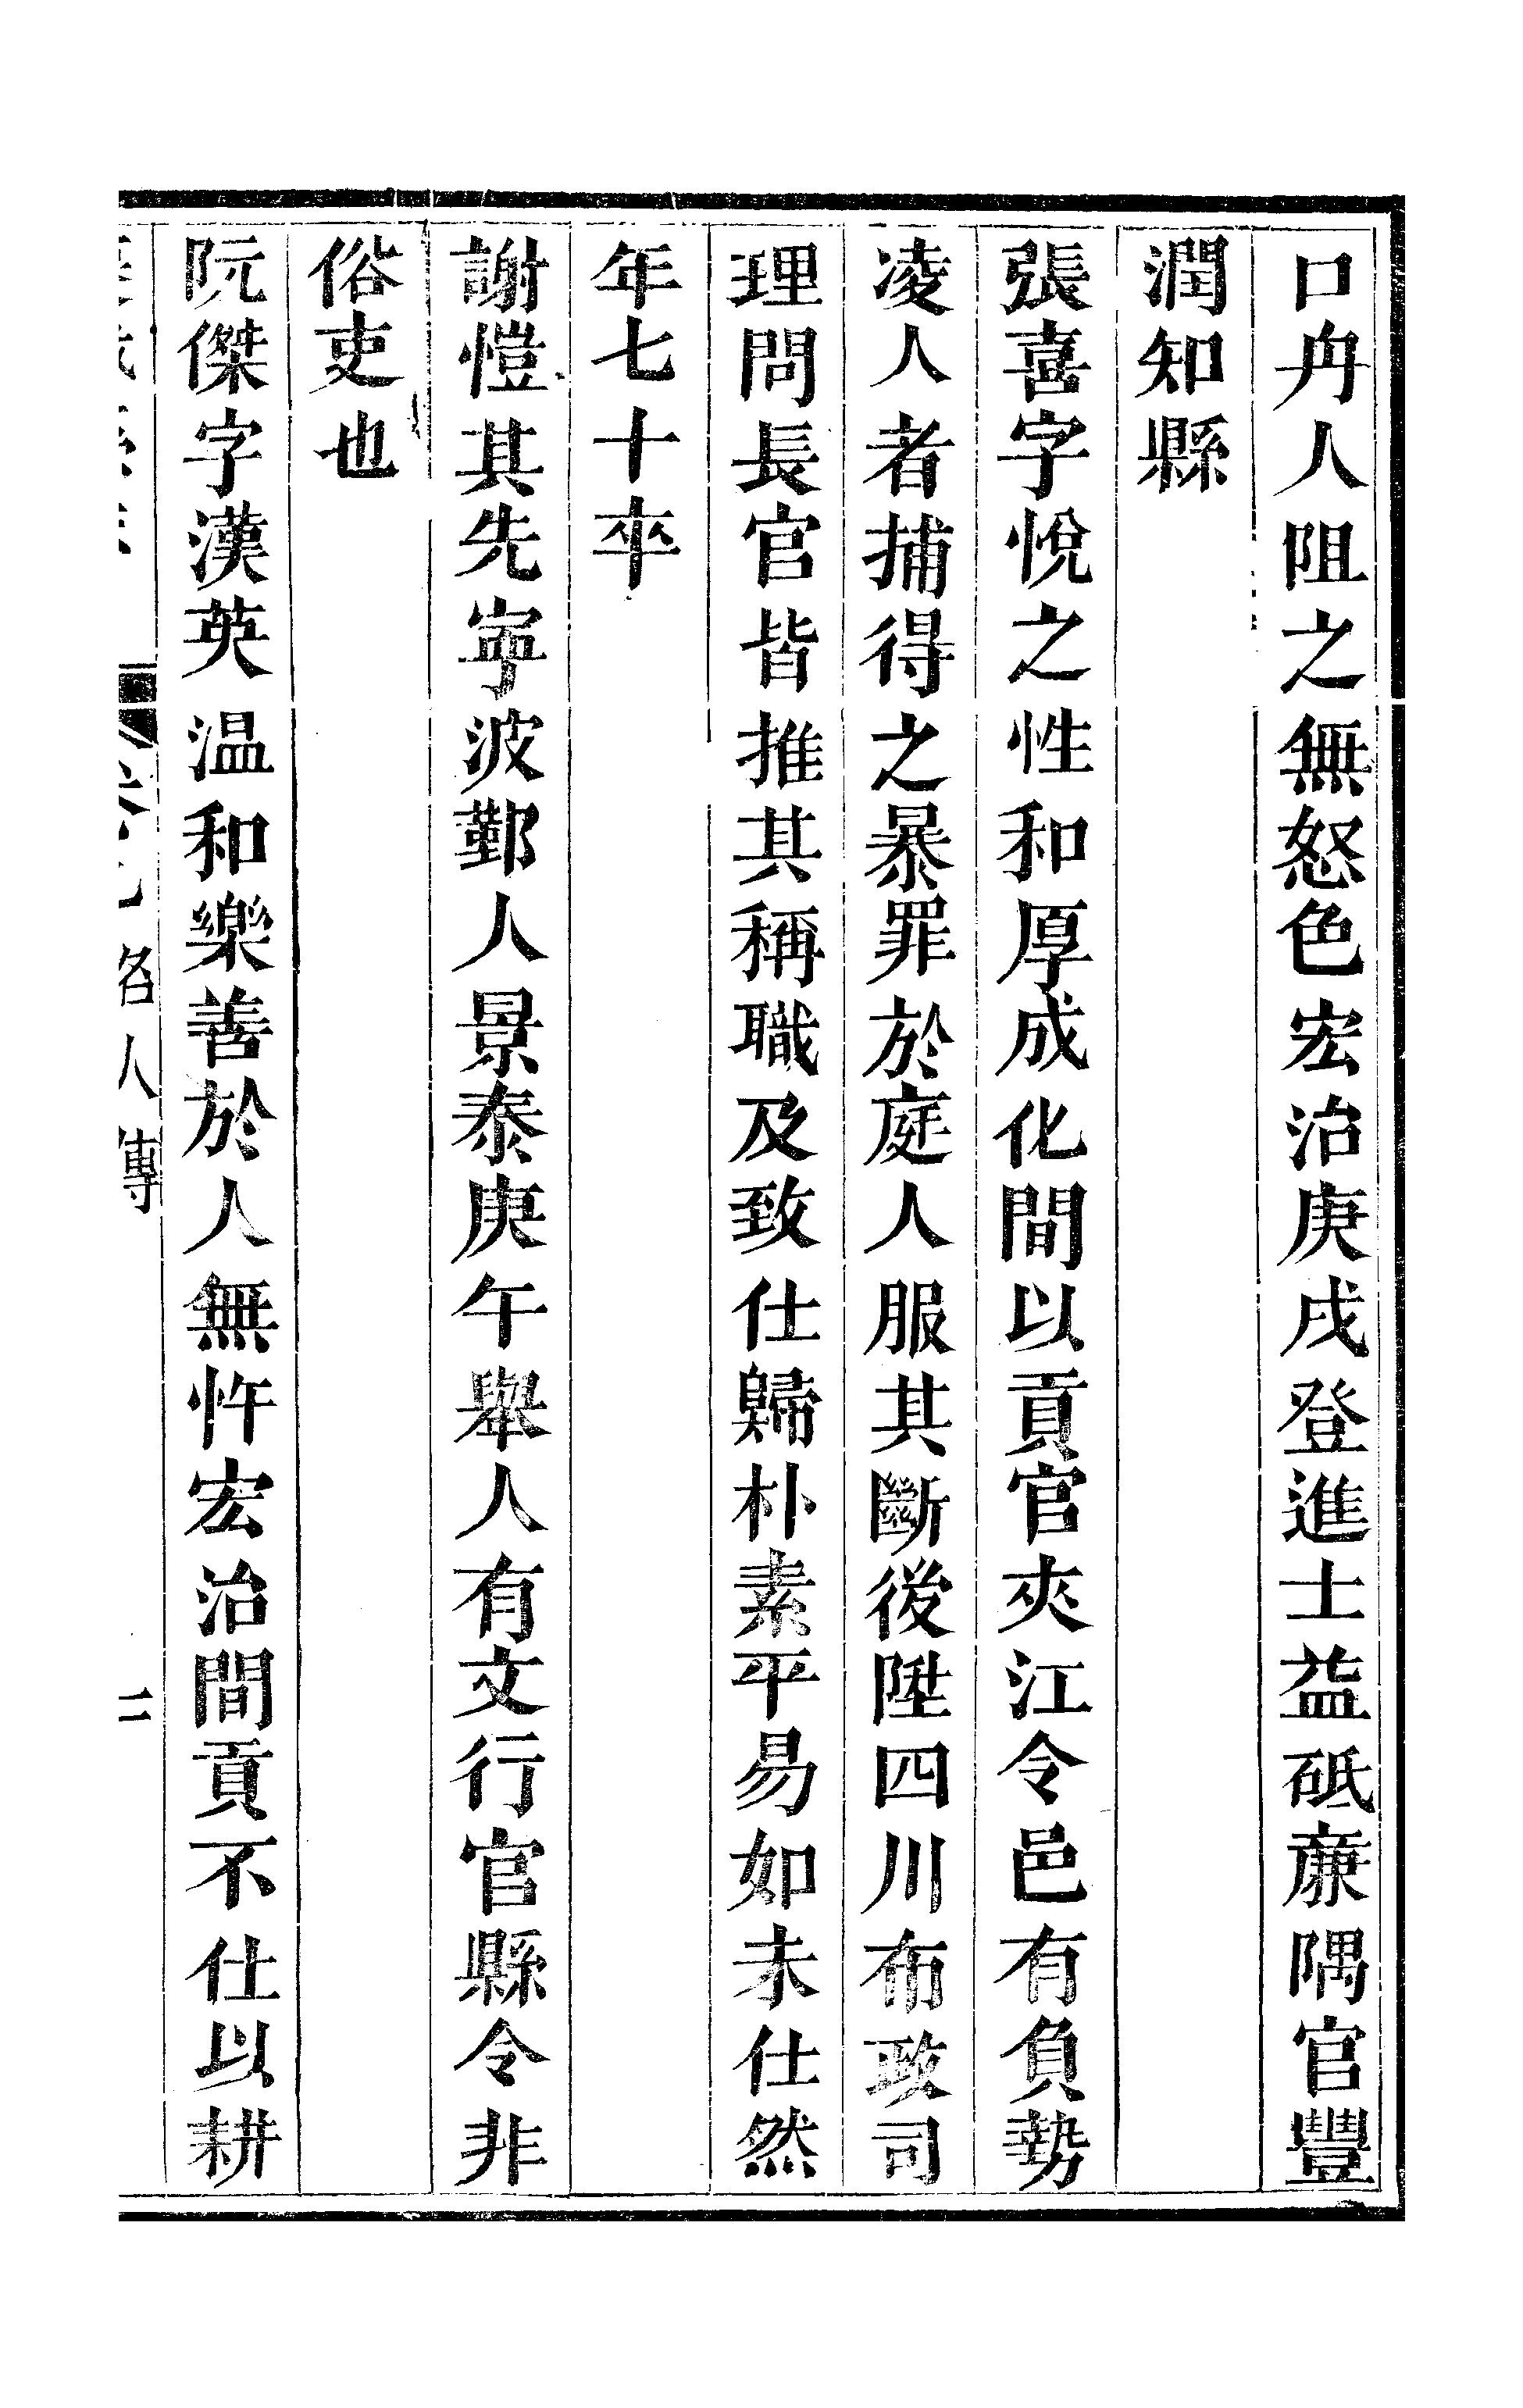 口冉人阻之無怒色宏治庚戌登進士益砥亷隅官豐
潤知縣
張喜字悅之性和厚成化間以貢官夾江令邑有負勢
凌人者捕得之暴罪於庭人服其斷後陞四川布政司
理問長官皆推其稱職及致仕歸朴素平易如未仕然
年七十卒
謝愷其先寧波鄞人景泰庚午舉人有文行官縣令非
俗吏也
阮傑字漢英温和樂善於人無忤宏治間貢不仕以耕
名人傳
二